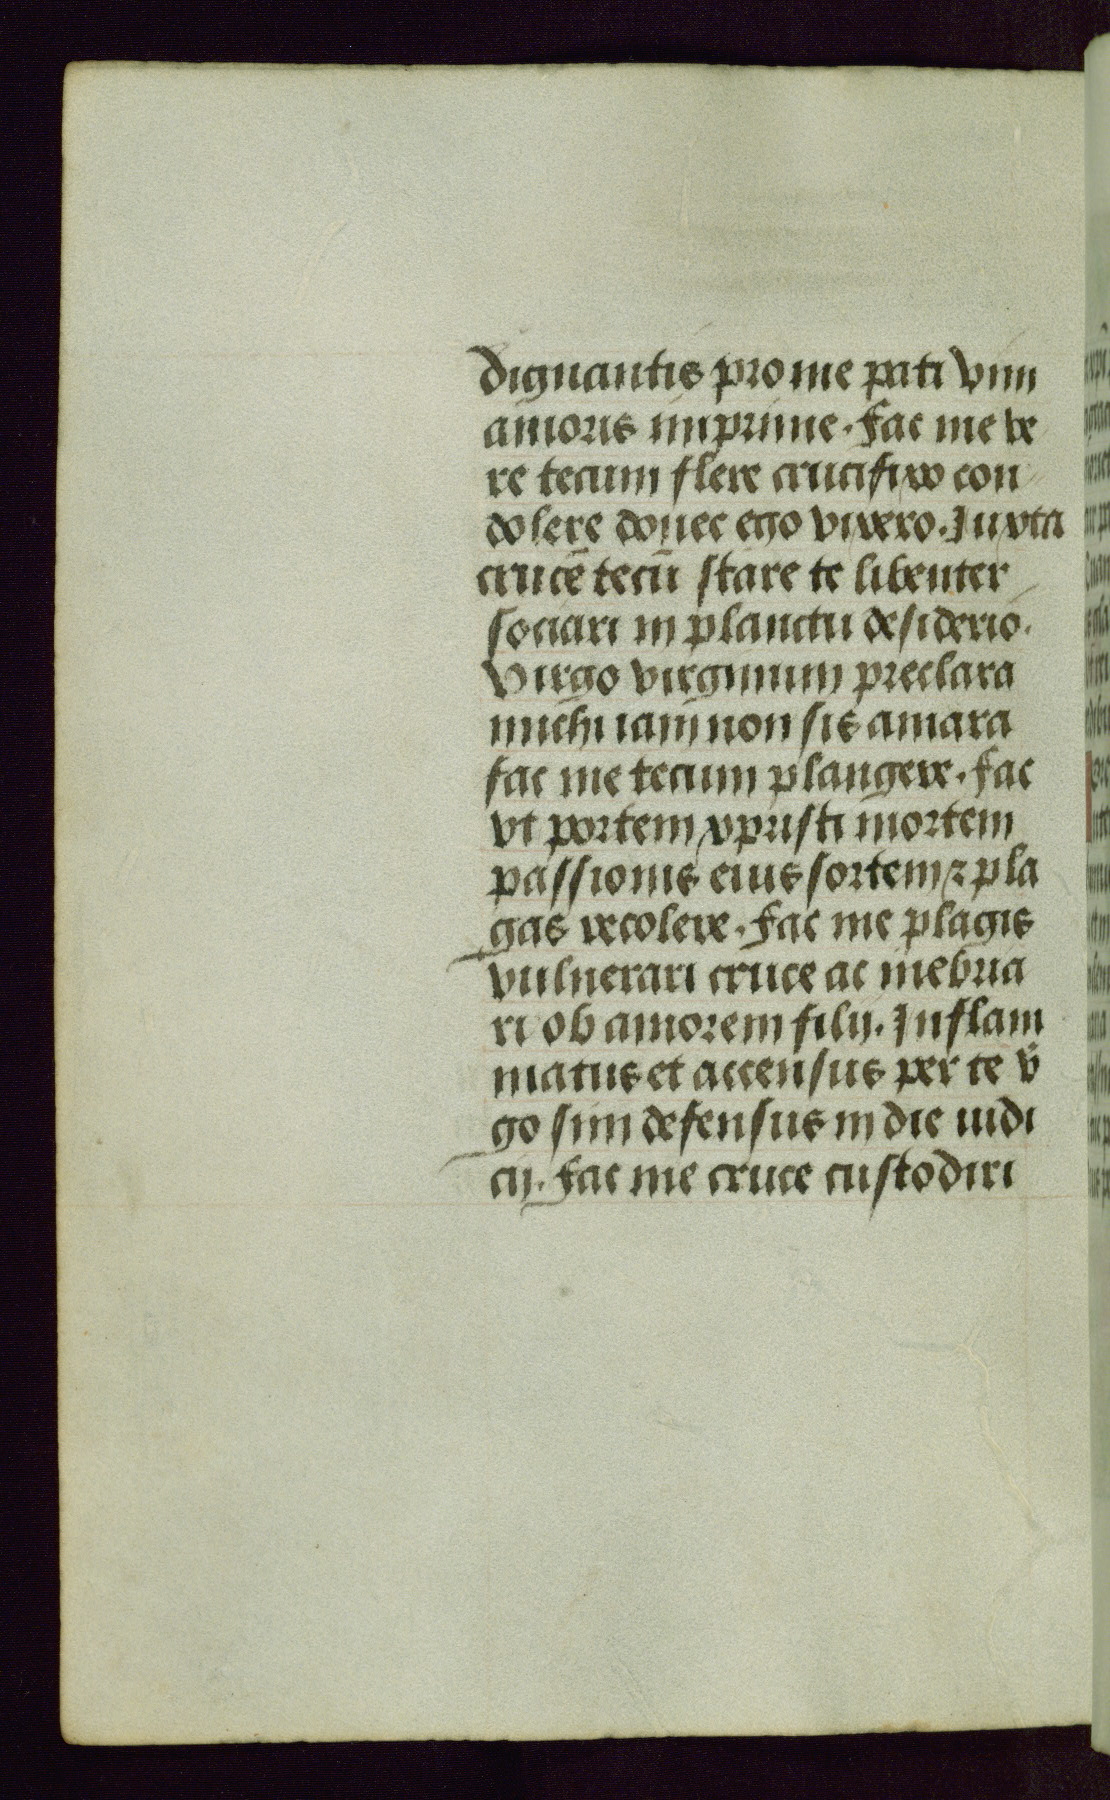 dignantis pro me pati vim
amoris imprime. fac me ve
re tecum flere crucifixo con
dolere donec ego vixero. Juxta
crucē tecū stare te libenter
sociari in planctu desiderio.
Virgo virginum preclara
michi iam non sis amara
fac me tecum plangere. fac
vt portem xpristi mortem
passionis eius sortem ⁊ pla
gas recolere. fac me plagis
vulnerari cruce ac inebria
ri ob amorem filij. Inflam
matus et accensus per te v̄
go sim defensus in die iudi
cij. fac me cruce custodiri